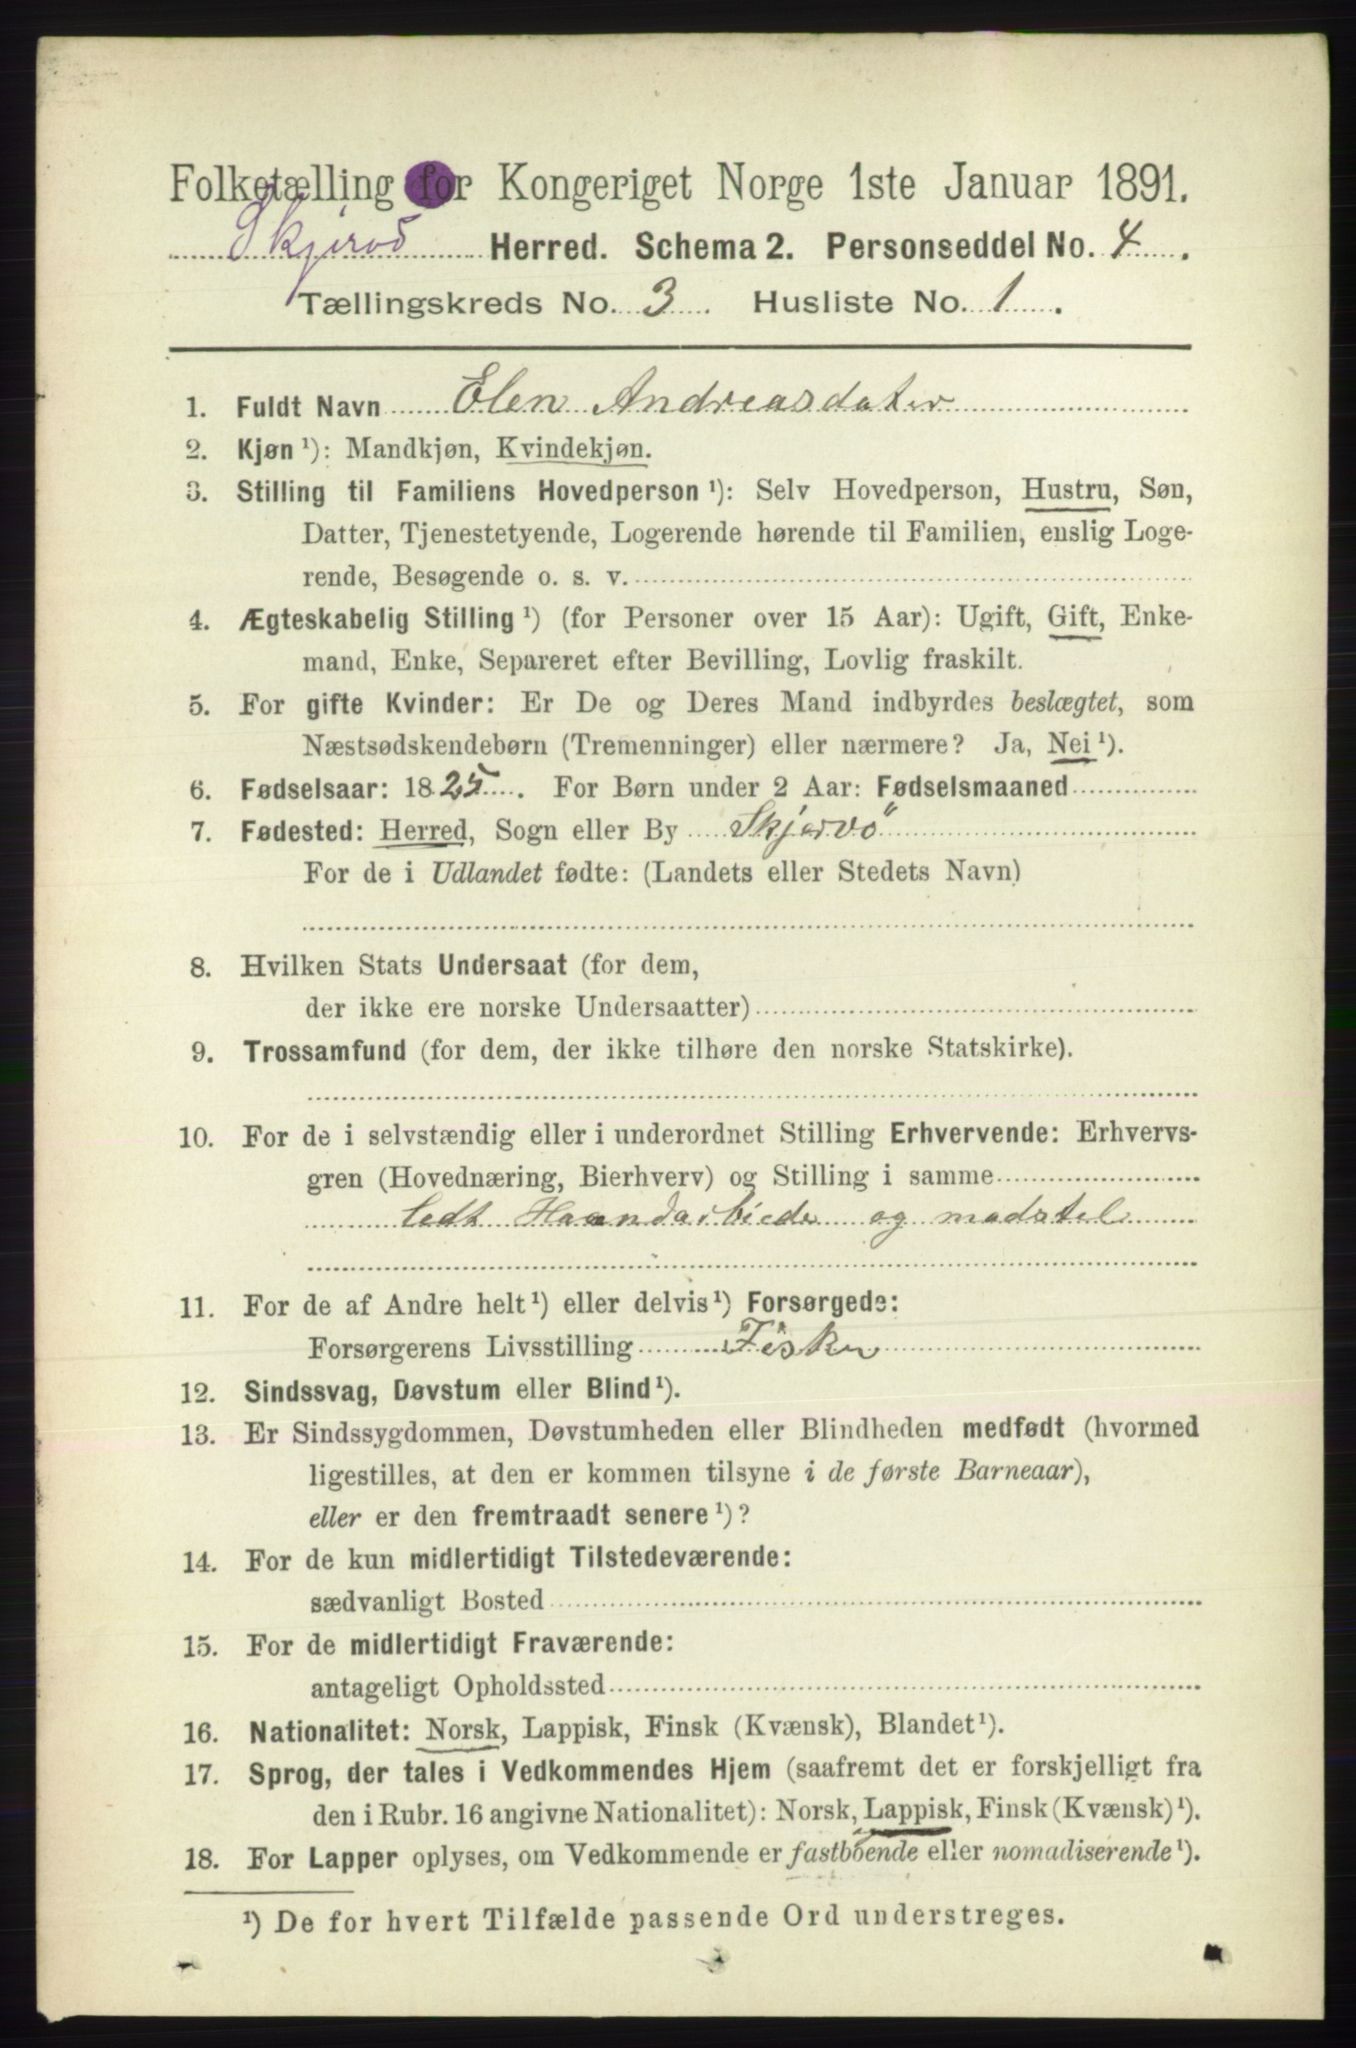 Folketælling for Kongeriget Norge 1ste Januar 1891.
Skjervö Herred. Schema 2. Personseddel No. 4.
Tællingskreds No. 3. Husliste No. 1.
1. Fuldt Navn Elen Andreasdater
2. Kjøn ¹): Mandkjøn, Kvindekjøn.
3. Stilling til Familiens Hovedperson ¹): Selv Hovedperson, Hustru, Søn,
Datter, Tjenestetyende, Logerende hørende til Familien, enslig Loge-
rende, Besøgende o. s. v.
4. Ægteskabelig Stilling ¹) (for Personer over 15 Aar): Ugift, Gift, Enke-
mand, Enke, Separeret efter Bevilling, Lovlig fraskilt.
5. For gifte Kvinder: Er De og Deres Mand indbyrdes beslægtet, som
Næstsødskendebørn (Tremenninger) eller nærmere? Ja, Nei ¹).
6. Fødselsaar: 1825. For Børn under 2 Aar: Fødselsmaaned
7. Fødested: Herred, Sogn eller By Skjervö
For de i Udlandet fødte: (Landets eller Stedets Navn)
8. Hvilken Stats Undersaat (for dem,
der ikke ere norske Undersaatter)
9. Trossamfund (for dem, der ikke tilhøre den norske Statskirke).
10. For de i selvstændig eller i underordnet Stilling Erhvervende: Erhvervs-
gren (Hovednæring, Bierhverv) og Stilling i samme
Haandarbiede og madstel
11. For de af Andre helt ¹) eller delvis ¹) Forsørgede:
Forsørgerens Livsstilling Fisker
12. Sindssvag, Døvstum eller Blind ¹).
13. Er Sindssygdommen, Døvstumheden eller Blindheden medfødt (hvormed
ligestilles, at den er kommen tilsyne i de første Barneaar),
eller er den fremtraadt senere ¹)?
14. For de kun midlertidigt Tilstedeværende:
sædvanligt Bosted
15. For de midlertidigt Fraværende:
antageligt Opholdssted
16. Nationalitet: Norsk, Lappisk, Finsk (Kvænsk), Blandet ¹).
17. Sprog, der tales i Vedkommendes Hjem (saafremt det er forskjelligt fra
den i Rubr. 16 angivne Nationalitet): Norsk, Lappisk, Finsk (Kvænsk) ¹).
18. For Lapper oplyses, om Vedkommende er fastboende eller nomadiserende ¹).
¹) De for hvert Tilfælde passende Ord understreges.